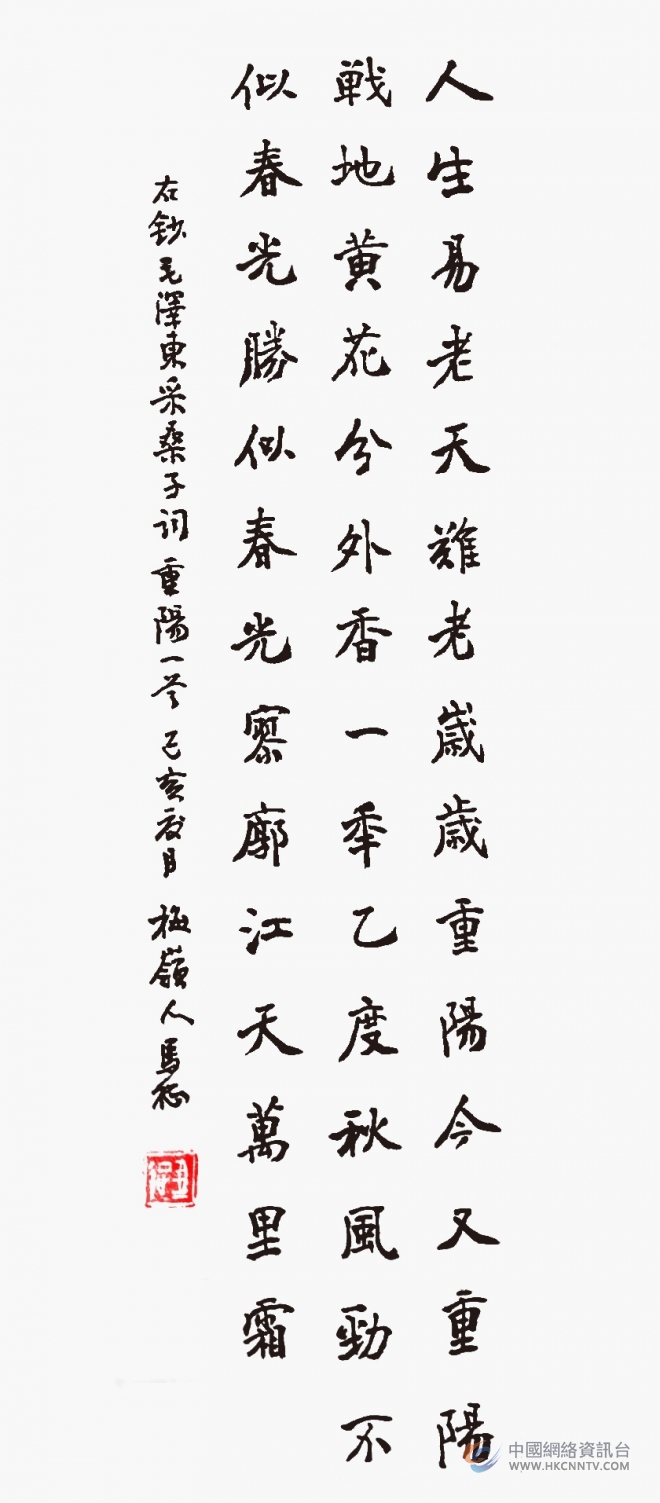 人生易老天難老歲歲重陽今又重陽
戰地黄花分外香一年乙度秋風勁不
似春光勝似春光寥廓江天萬里霜
右鈔毛澤東采桑子詞重陽一首 己亥 月 梅嶺人馬
中國網絡資訊台
WWW.HKCNNTV.COM